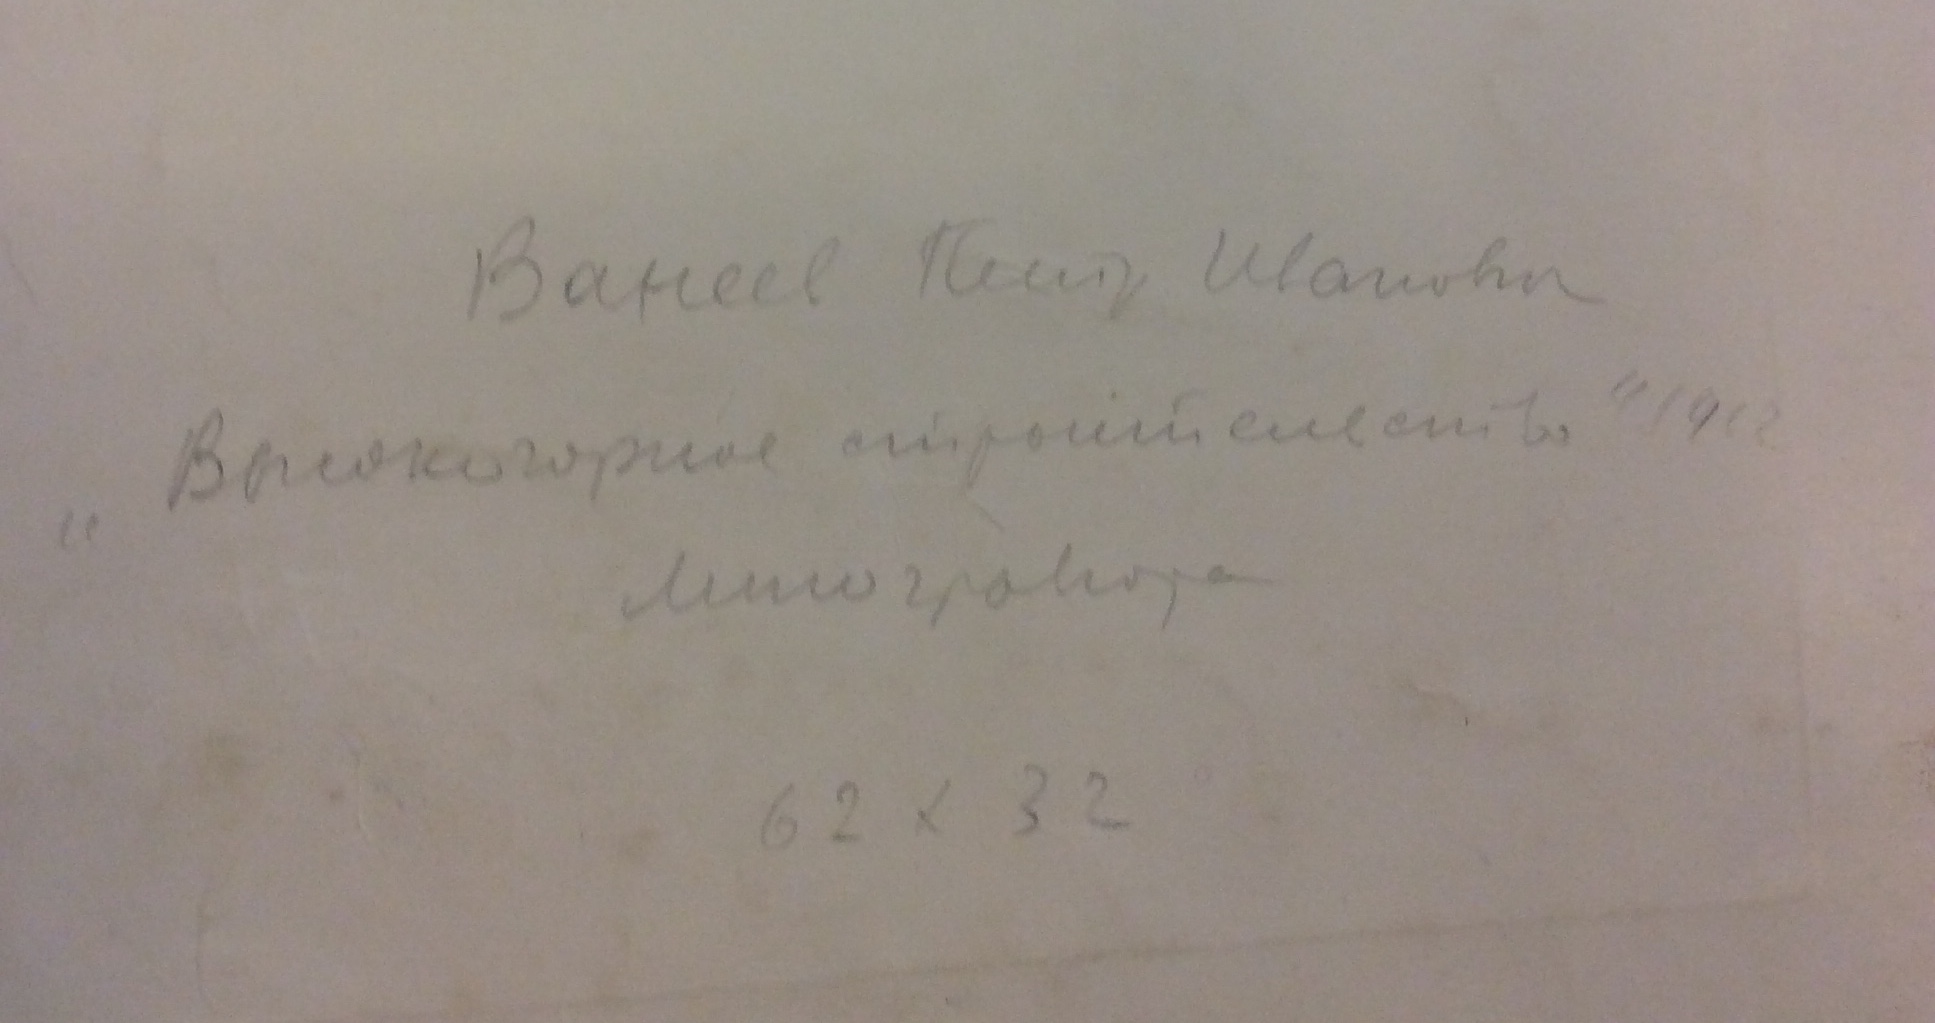 Ванеев Петр Иванович
„Высокогорное строительство"
Линогравюра
62 х 32